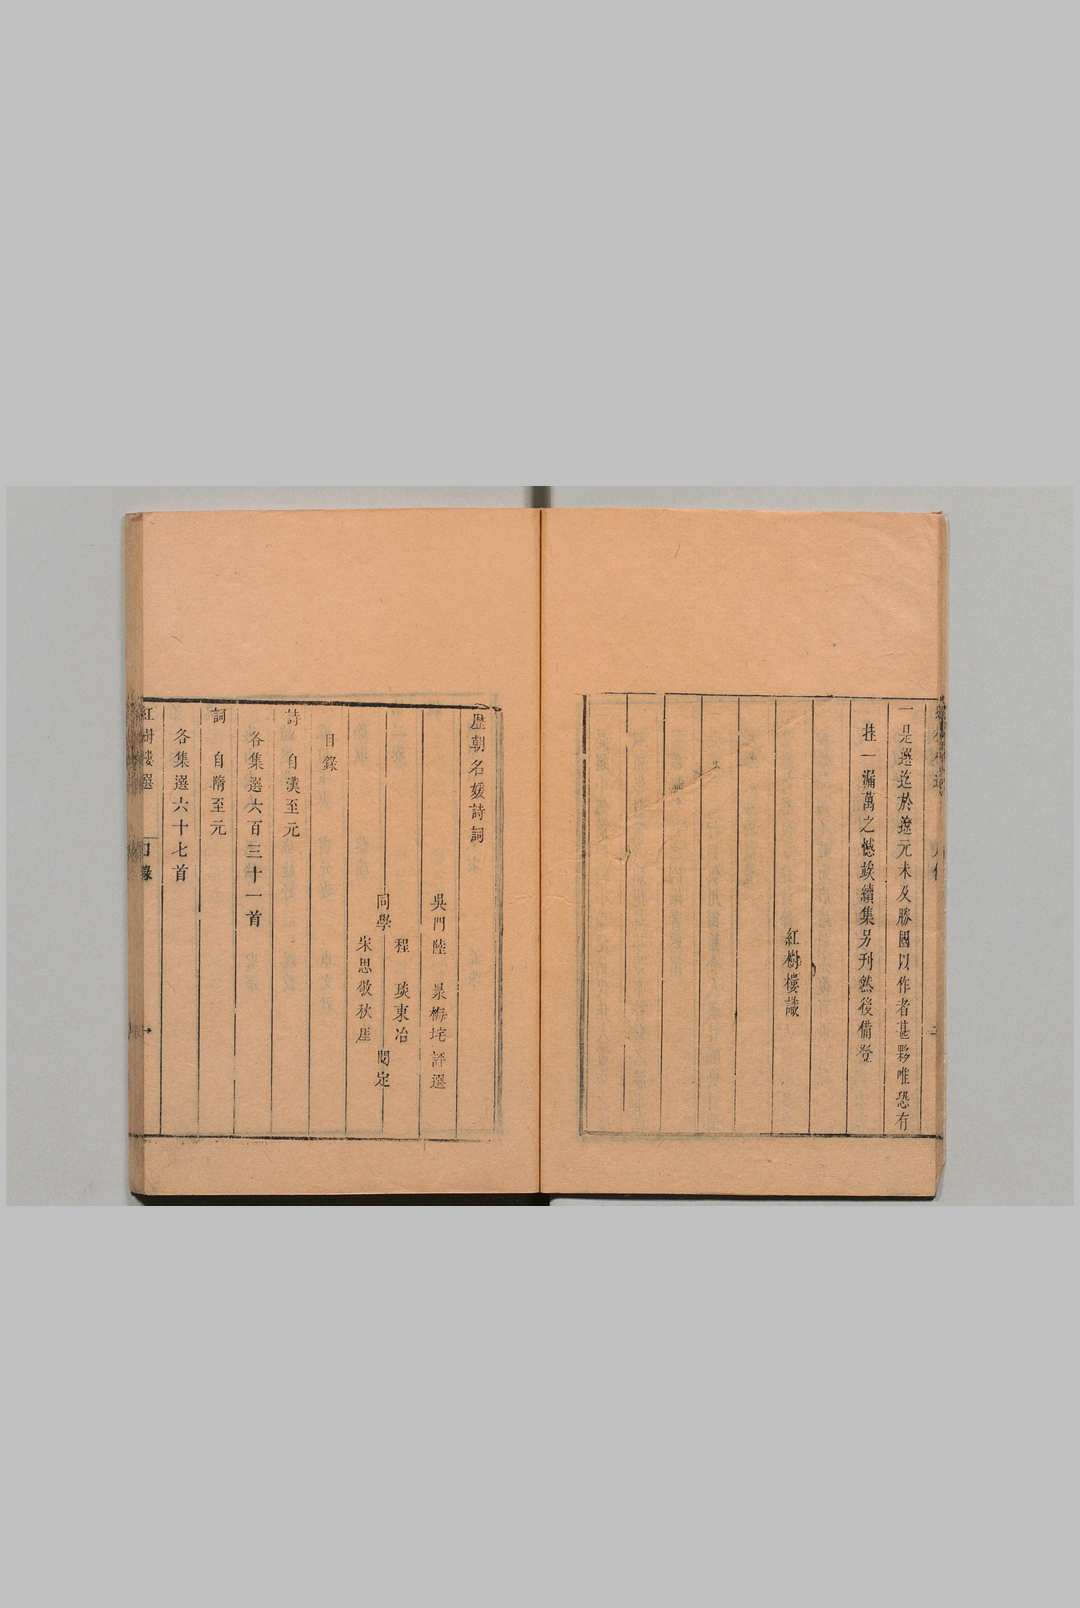 一是選迄於遼元未及勝國以作者甚夥唯恐有
挂一漏萬之憾竢續集另刊然後備登
紅樹樓識
歷朝名媛詩詞
吳門陸 昶梅垞評選
同學
程 琰東冶
宋思敬秋崖
閱定
目錄
詩 自漢至元
各集選六百三十一首
詞 自隋至元
各集選六十七首
紅樹樓選
目錄
一